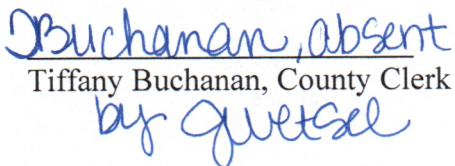 TBuchanan, absent
Tiffany Buchanan, County Clerk
by